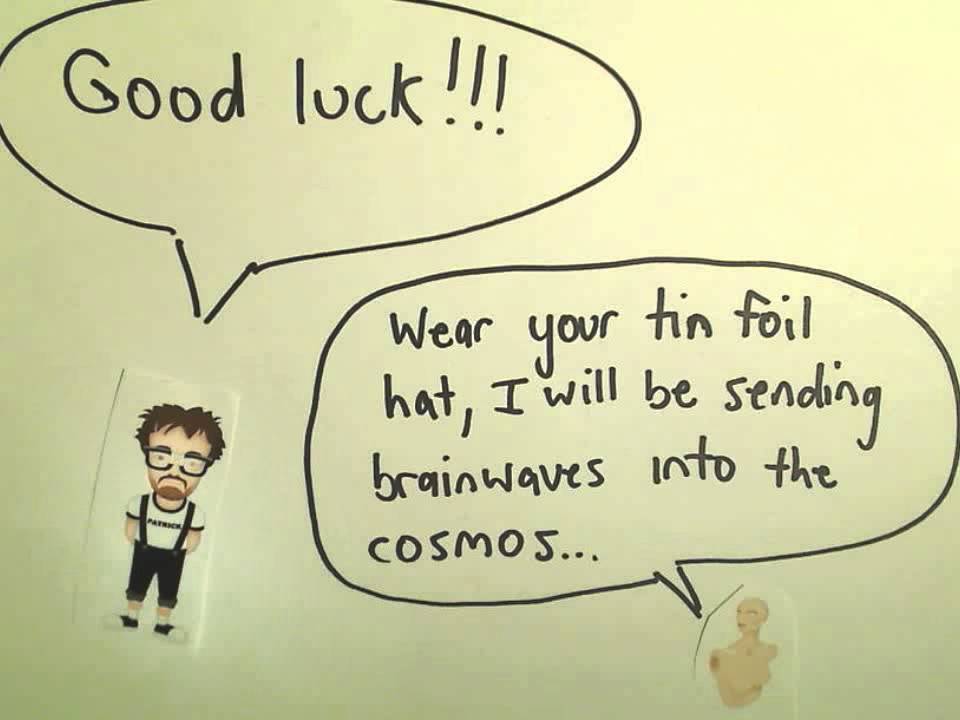 Good luck!!!
Wear your tin foil
hat, I will be sending
brainwaves into the
cosmos...
PATRICK